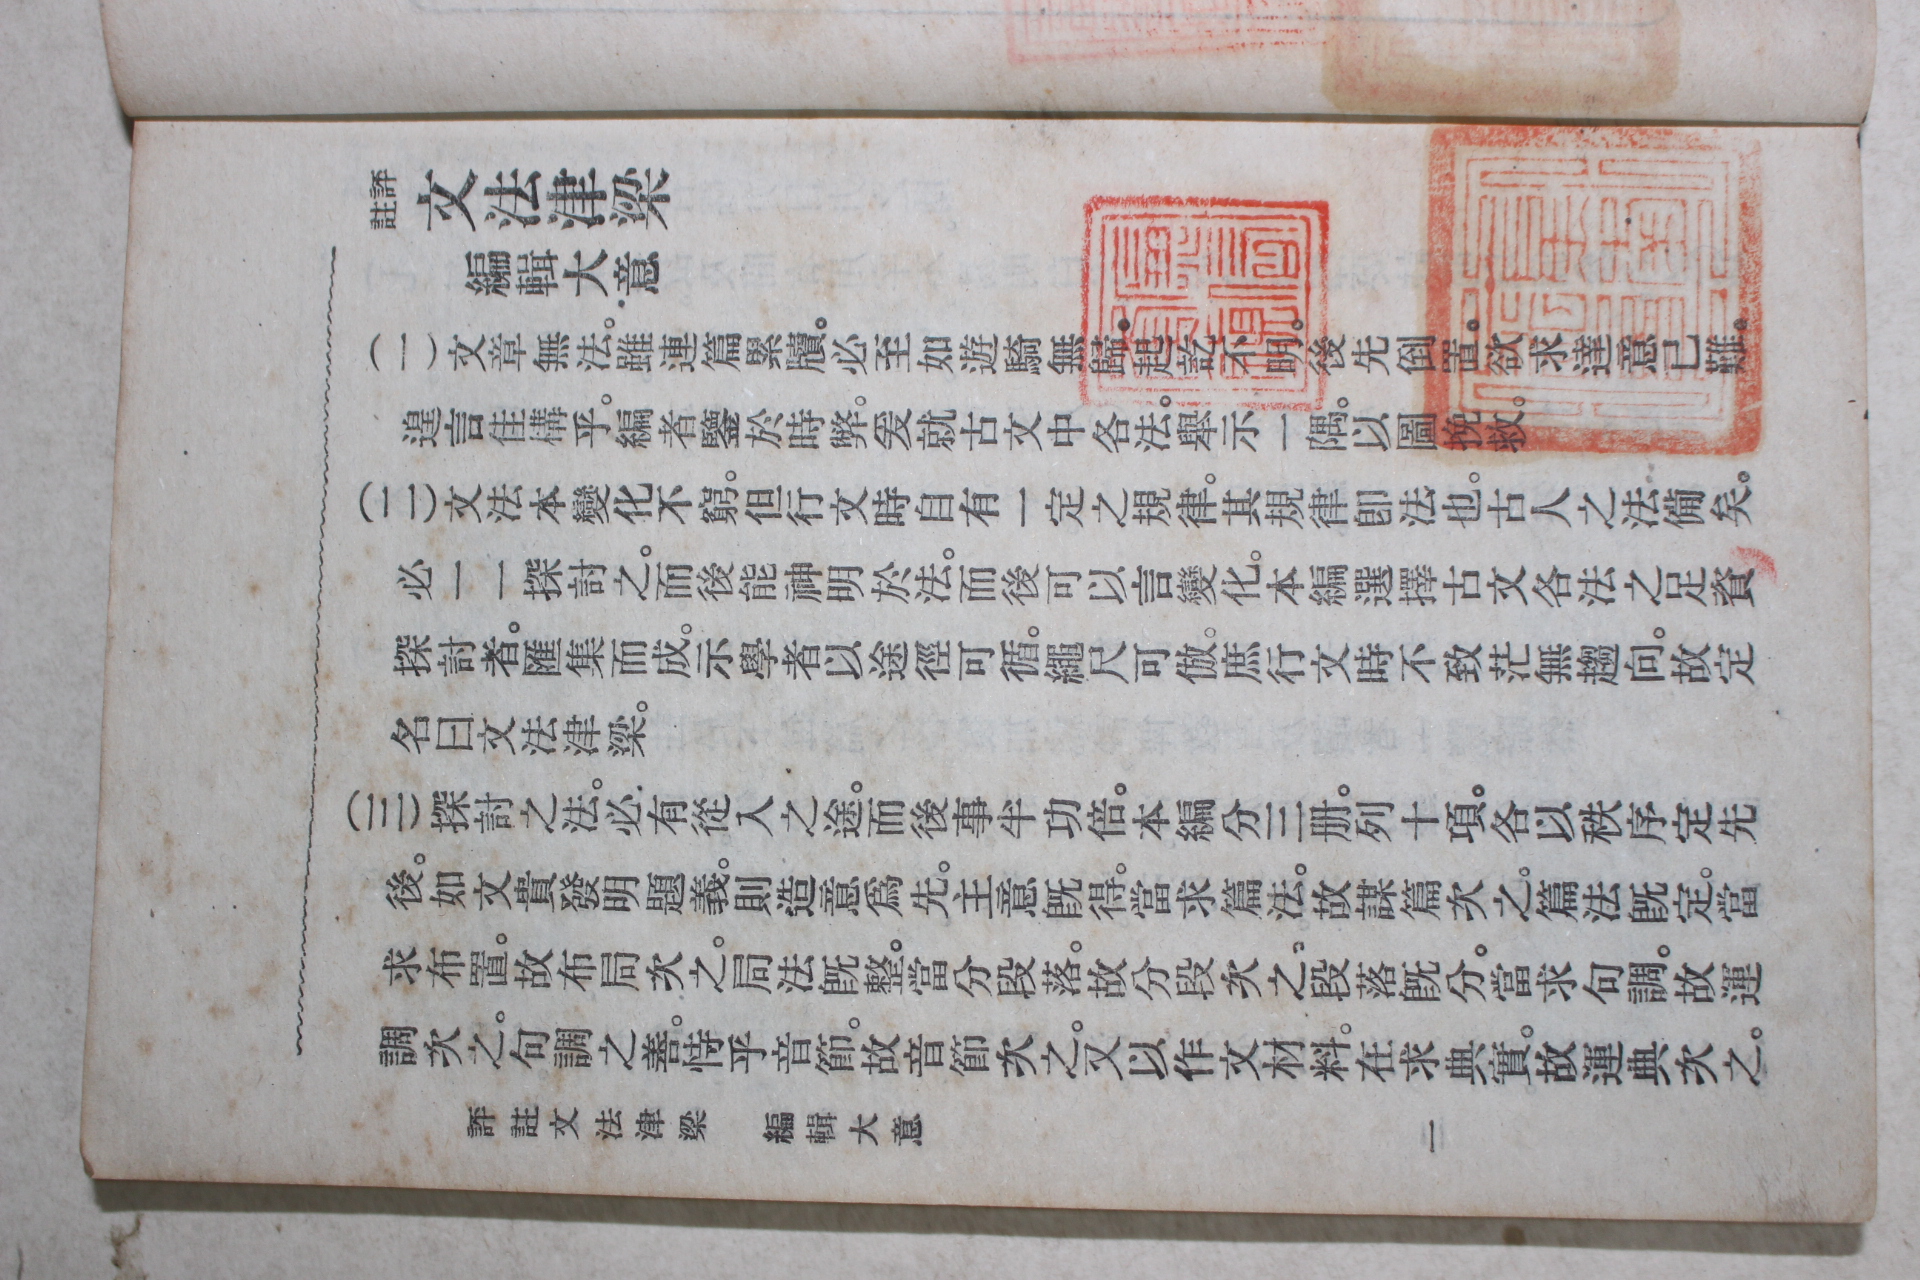 評註文法津梁
編輯大意
(一)文章無法。雖連篇累牘。必至如遊騎無歸。起訖不明。後先倒置。欲求達意已難。
遑言佳構乎。編者鑒於時弊。爰就古文中各法。舉示一隅。以圖挽救。
(二)文法本變化不窮。但行文時自有一定之規律。其規律卽法也。古人之法備矣。
必一一探討之。而後能神明於法。而後可以言變化。本編選擇古文各法之足資
探討者。匯集而成。示學者以途徑可循。繩尺可倣。庶行文時不致茫無趨向。故定
名曰文法津梁。
(三)探討之法。必有從入之途。而後事半功倍。本編分三册。列十項。各以秩序定先
後。如文貴發明題義。則造意爲先。主意旣得。當求篇法。故謀篇次之。篇法旣定。當
求布置。故布局次之。局法旣整。當分段落。故分段次之。段落旣分。當求句調。故運
調次之。句調之善。恃乎音節。故音節次之。又以作文材料。在求典實。故運典次之。
評註文法津梁　編輯大意　一